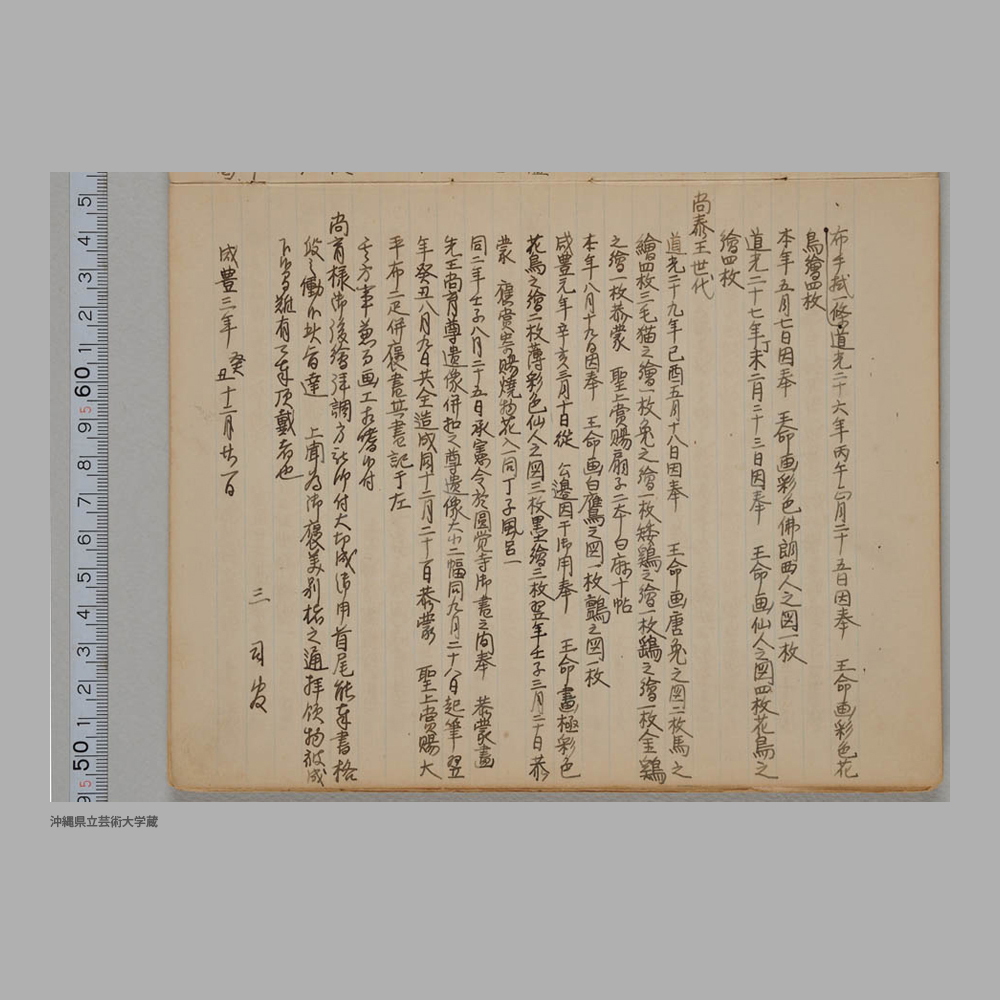 布手拭一條道光二十六年丙午正月二十五日因奉 王命画彩色花
鳥繪四枚
本年五月七日因奉 王命画彩色佛朗西人之図一枚
道光二十七年丁未二月二十三日因奉 王命画仙人之図四枚花鳥之
繪四枚
尚泰王世代
道光二十九年己酉五月十八日因奉 王命画唐兔之図二枚馬之
繪四枚三毛猫之繪一枚兔之繪一枚矮鶏之繪一枚鶏之繪一枚金鶏
之繪一枚恭蒙 聖上賞賜扇子二本白麻十帖
本年八月十九日因奉 王命画白鷹之図一枚鸇之図一枚
咸豊元年辛亥三月十日從 公邊因干御用奉 王命畫極彩色
花鳥之繪二枚薄彩色仙人之図三枚墨繪三枚翌年壬子三月二十日恭
蒙 褒賞賜燒物花入一同丁子風呂一
同二年壬子八月二十五日承憲令於圓覚寺御書之間奉 恭蒙畫
先王尚育尊遺像併扣之尊遺像大小二幅同九月二十八日起筆翌
年癸丑八月九日共全造成同十二月二十一日恭蒙 聖上賞賜大
平布二疋併褒書其書記于左
其方事兼而画工相嗜候付
尚育様御後繪拝調方被仰付大切成御用首尾能相達書格
段之働候此旨達 上聞為御褒美別紙之通拝領物被成
下候有難有可奉頂戴者也
咸豊三年癸丑十二月廿一日
三司官
沖縄県立芸術大学蔵